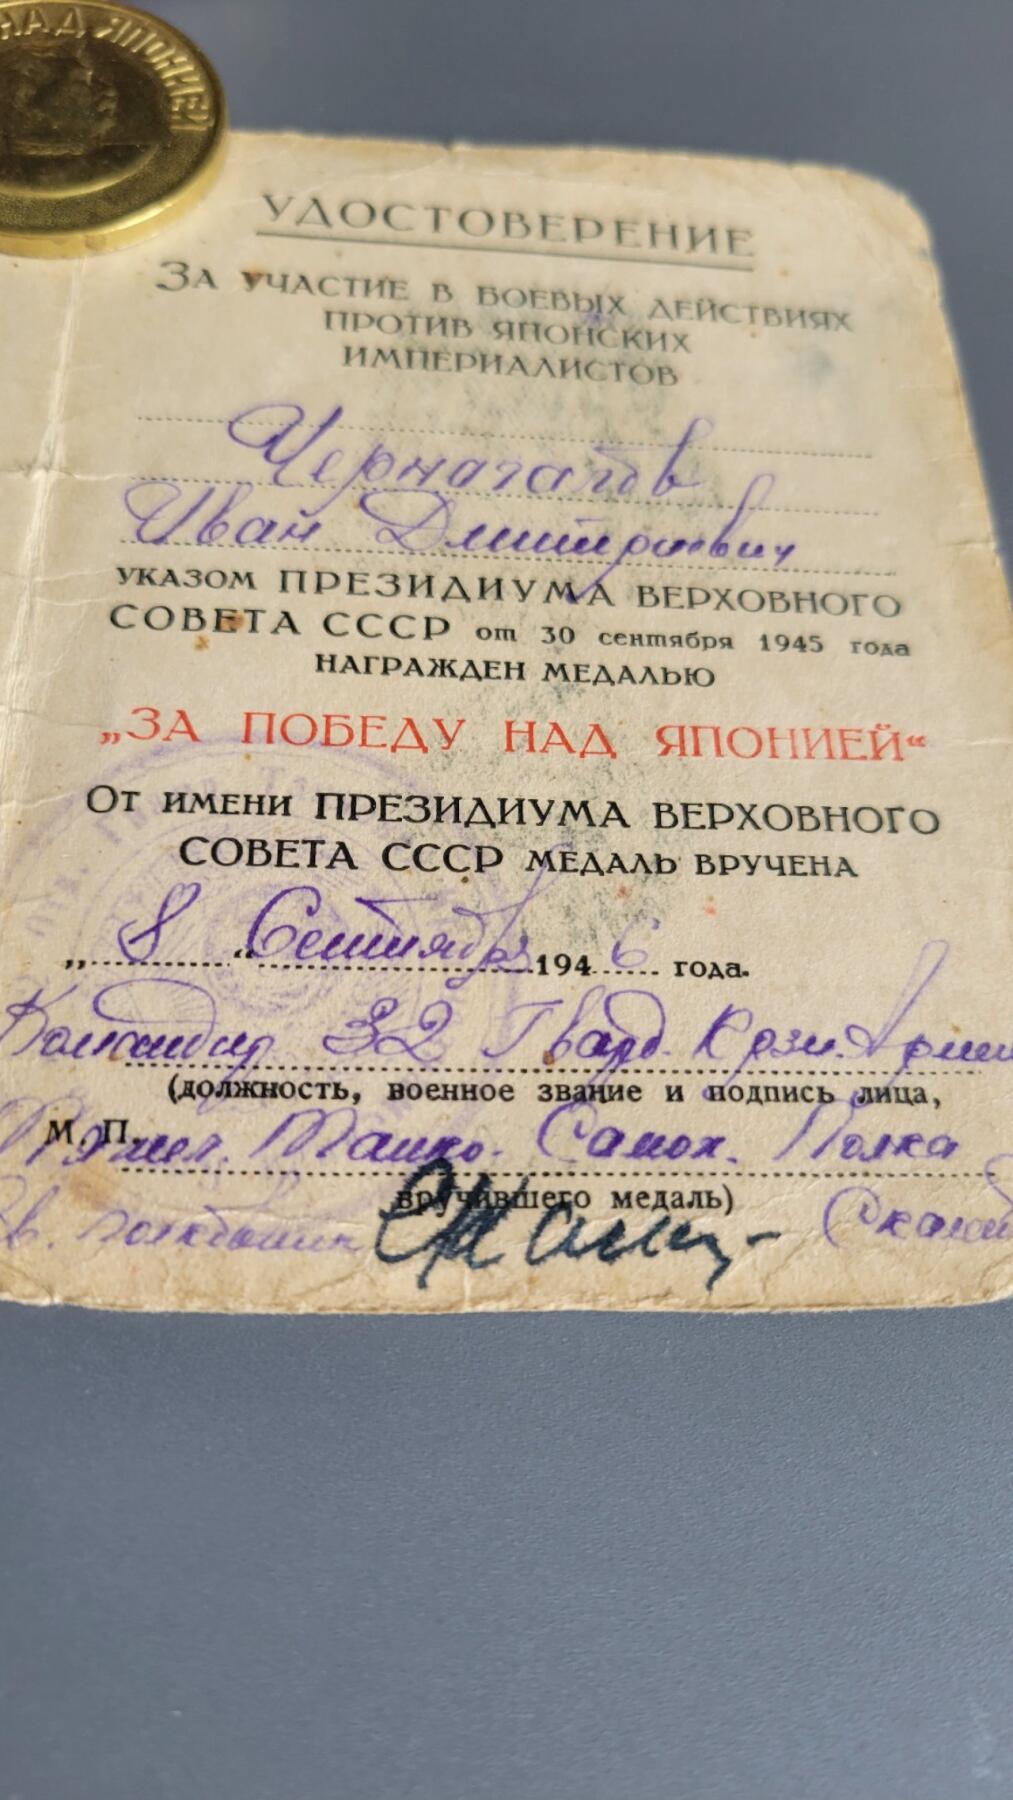 НАД ЯПОНИЕЙ
УДОСТОВЕРЕНИЕ
ЗА УЧАСТИЕ В БОЕВЫХ ДЕЙСТВИЯХ
ПРОТИВ ЯПОНСКИХ
ИМПЕРИАЛИСТОВ
Иван Дмитриевич
УКАЗОМ ПРЕЗИДИУМА ВЕРХОВНОГО
СОВЕТА СССР от 30 сентября 1945 года
НАГРАЖДЕН МЕДАЛЬЮ
„ЗА ПОБЕДУ НАД ЯПОНИЕЙ“
ОТ ИМЕНИ ПРЕЗИДИУМА ВЕРХОВНОГО
СОВЕТА СССР МЕДАЛЬ ВРУЧЕНА
„8“ Сентября 1946 года.
Командир 32 Гвард.
(должность, военное звание и подпись лица,
М. П. Танко. Самох. Полка
вручившего медаль)